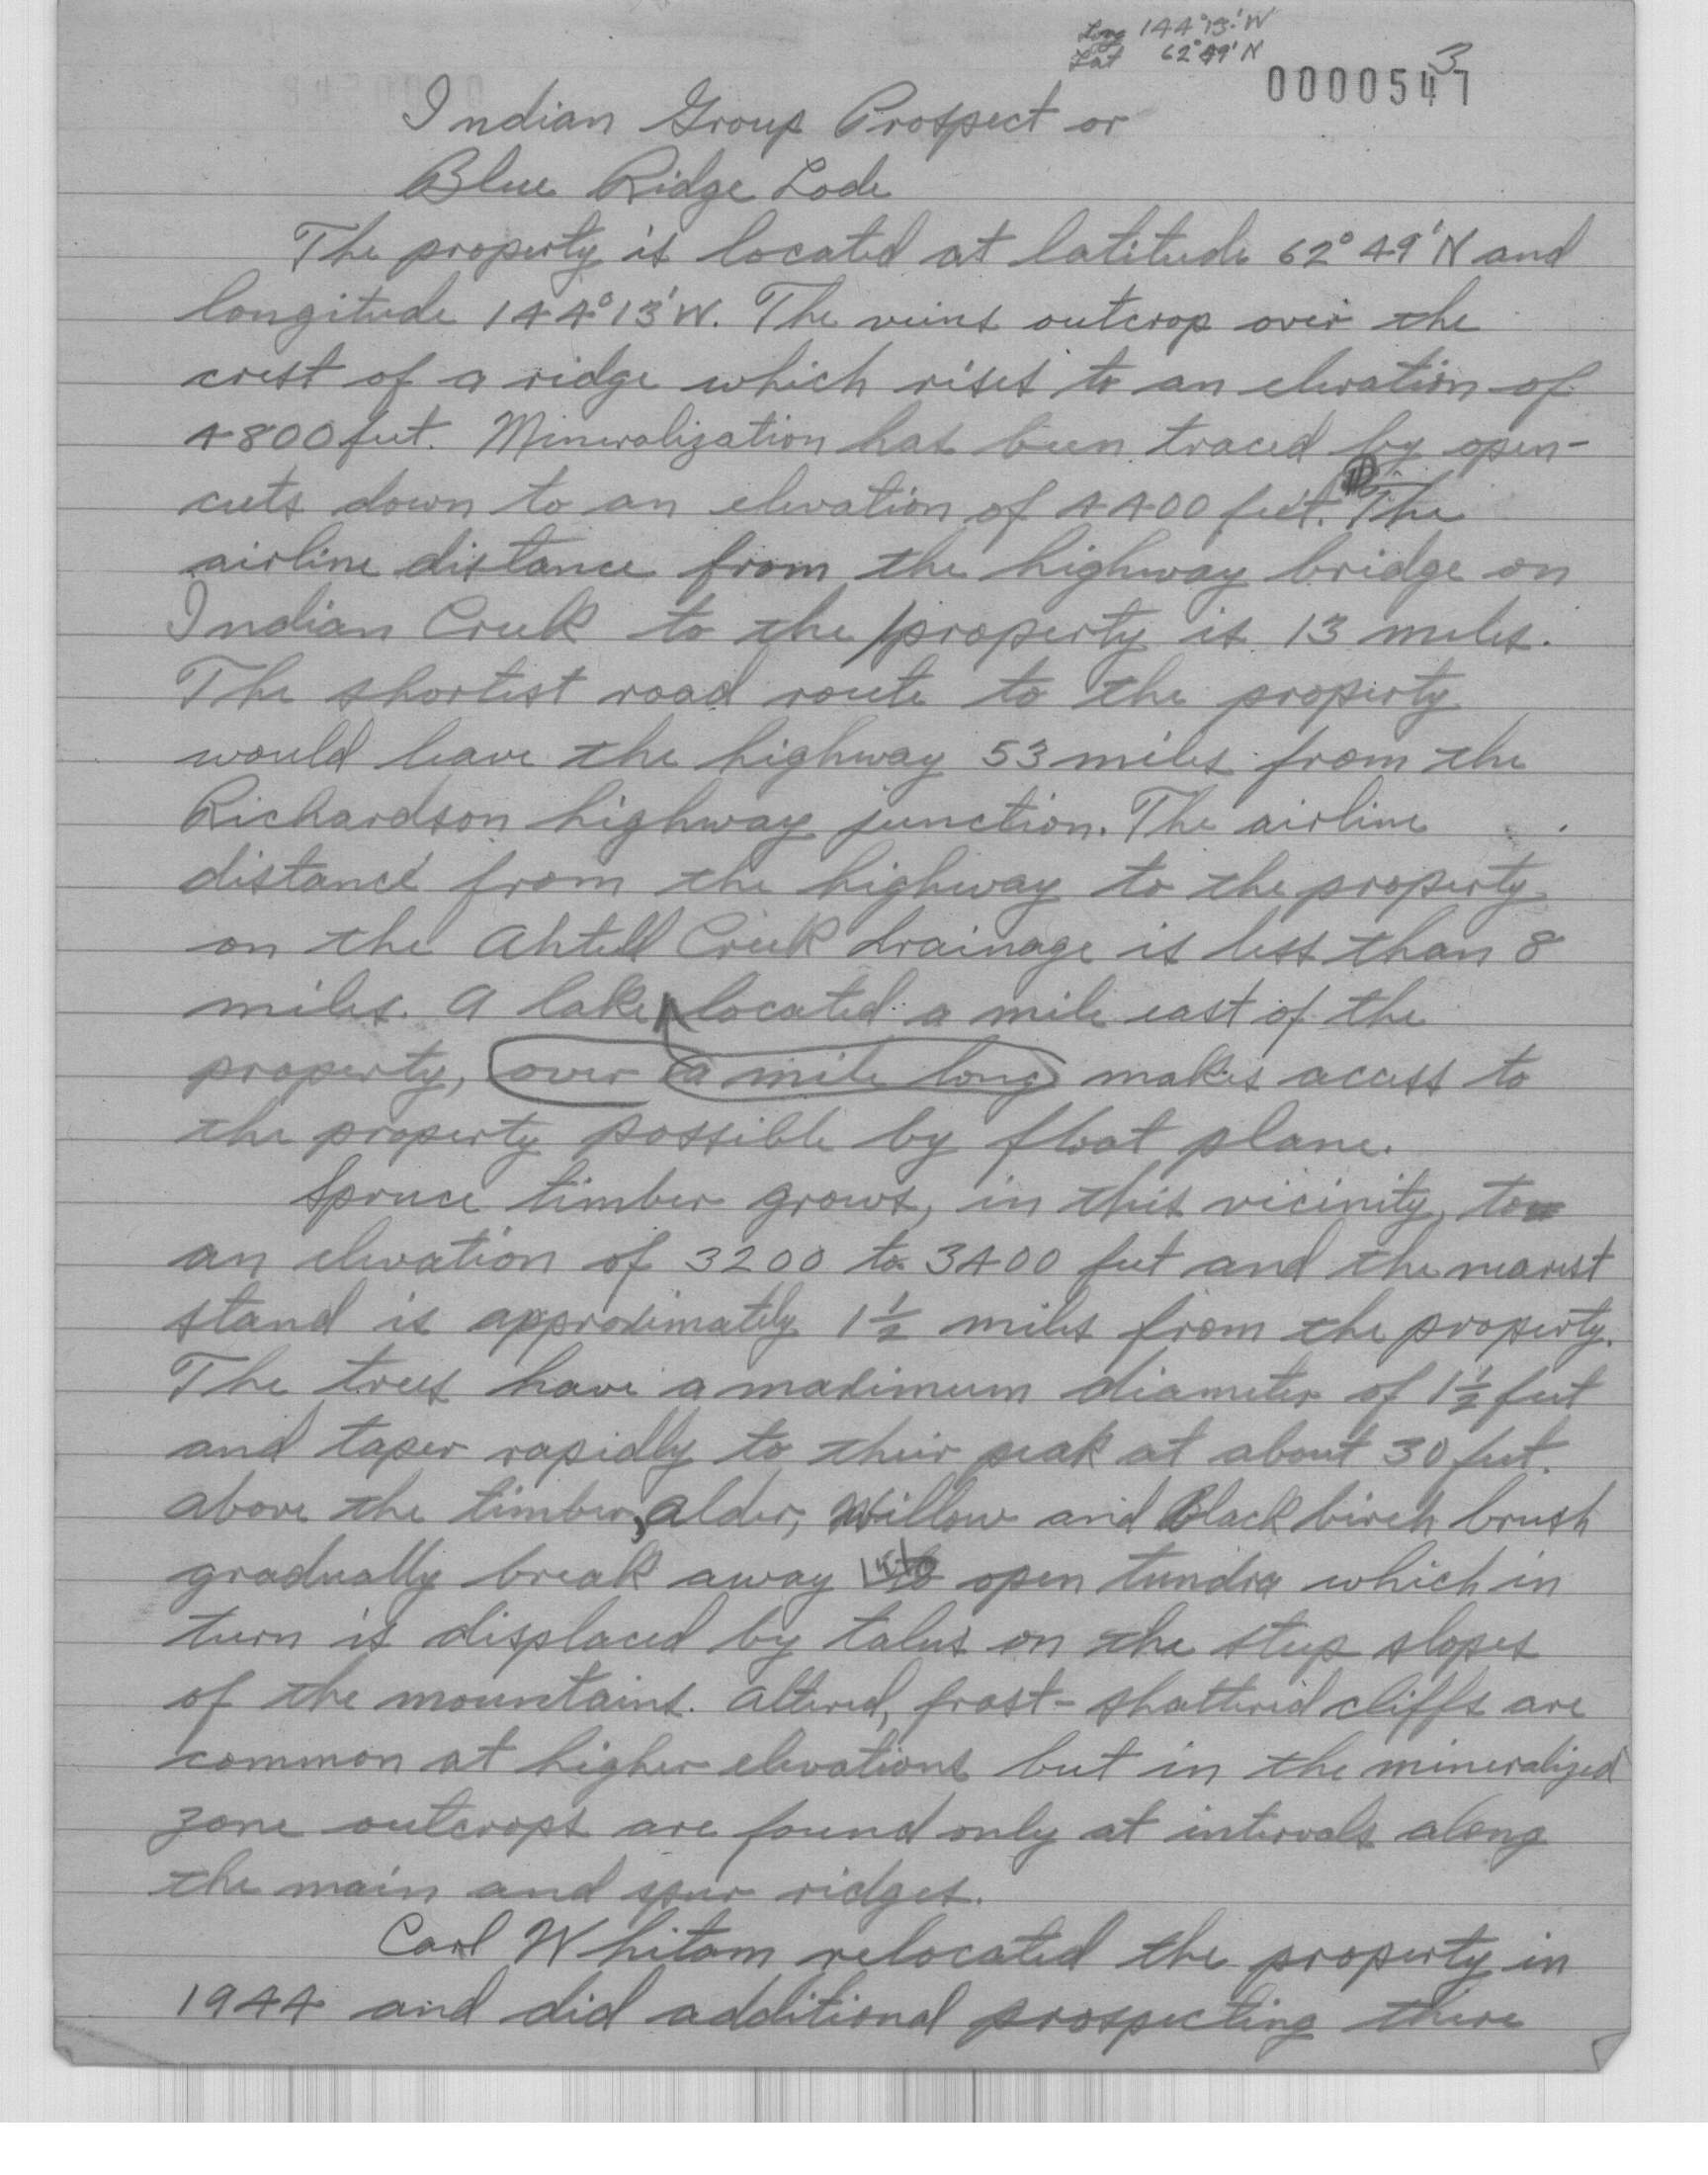 Long 144°13'W
Lat 62°49'N
3
0000547
Indian Group Prospect or
Blue Ridge Lode
The property is located at latitude 62° 49' N and
longitude 144°13'W. The veins outcrop over the
crest of a ridge which rises to an elevation of
4800 feet. Mineralization has been traced by open-
cuts down to an elevation of 4400 feet. The
airline distance from the highway bridge on
Indian Creek to the property is 13 miles.
The shortest road route to the property
would leave the highway 53 miles from the
Richardson highway junction. The airline
distance from the highway to the property
on the Ahtell Creek drainage is less than 8
miles. A lake located a mile east of the
property, over a mile long makes access to
the property possible by float plane.
Spruce timber grows, in this vicinity, to
an elevation of 3200 to 3400 feet and the nearest
stand is approximately 1½ miles from the property.
The trees have a maximum diameter of 1½ feet
and taper rapidly to their peak at about 30 feet.
Above the timber, alder, willow and black birch brush
gradually break away into open tundra which in
turn is displaced by talus on the steep slopes
of the mountains. Altered, frost-shattered cliffs are
common at higher elevations but in the mineralized
zone outcrops are found only at intervals along
the main and spur ridges.
Carl Whitam relocated the property in
1944 and did additional prospecting there